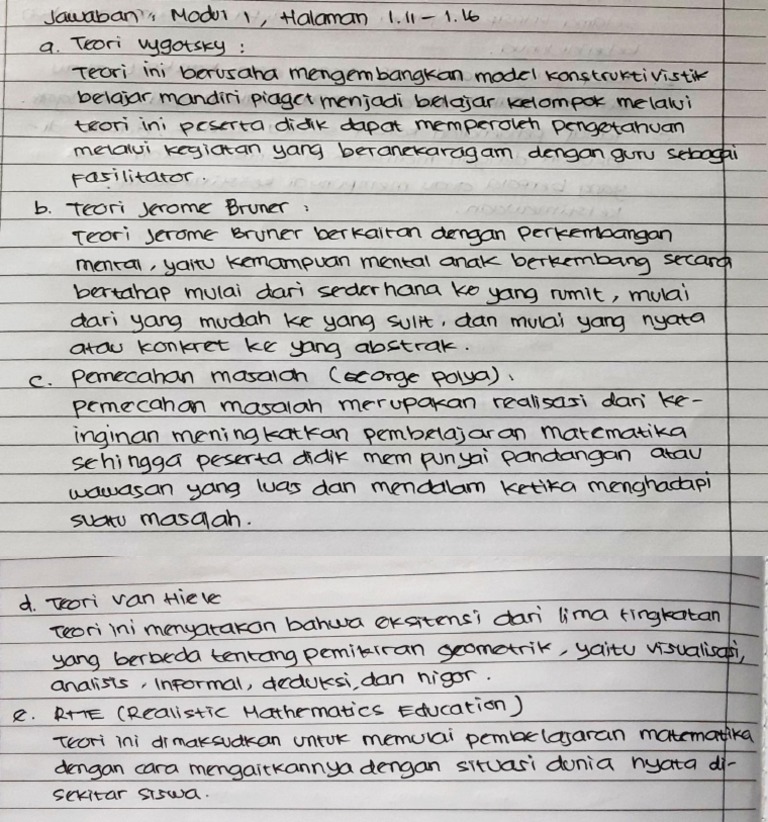 Jawaban : Modul 1, Halaman 1.11 - 1.16
a. Teori Vygotsky :
Teori ini berusaha mengembangkan model konstruktivistik
belajar mandiri piaget menjadi belajar kelompok melalui
teori ini peserta didik dapat memperoleh pengetahuan
melalui kegiatan yang beranekaragam dengan guru sebagai
Fasilitator.
b. Teori Jerome Bruner :
Teori Jerome Bruner berkaitan dengan perkembangan
mental, yaitu kemampuan mental anak berkembang secara
bertahap mulai dari sederhana ke yang rumit, mulai
dari yang mudah ke yang sulit, dan mulai yang nyata
atau konkret ke yang abstrak.
c. Pemecahan masalah (George Polya).
Pemecahan masalah merupakan realisasi dari ke-
inginan meningkatkan pembelajaran matematika
sehingga peserta didik mempunyai pandangan atau
wawasan yang luas dan mendalam ketika menghadapi
suatu masalah.
d. Teori Van Hiele
Teori ini menyatakan bahwa eksitensi dari lima tingkatan
yang berbeda tentang pemikiran geometrik, yaitu visualisasi,
analisis, Informal, deduksi, dan rigor.
e. RME (Realistic Mathematics Education)
Teori ini dimaksudkan untuk memulai pembelajaran matematika
dengan cara mengaitkannya dengan situasi dunia nyata di-
sekitar siswa.